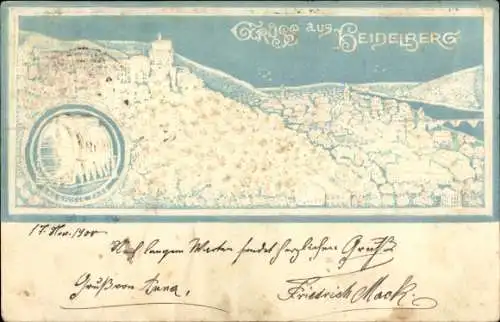 Gruss aus Heidelberg
17. Nov. 1900
Nach langem Warten sendet herzlichen Gruß
Gruß von Anna,
Friedrich Mack.